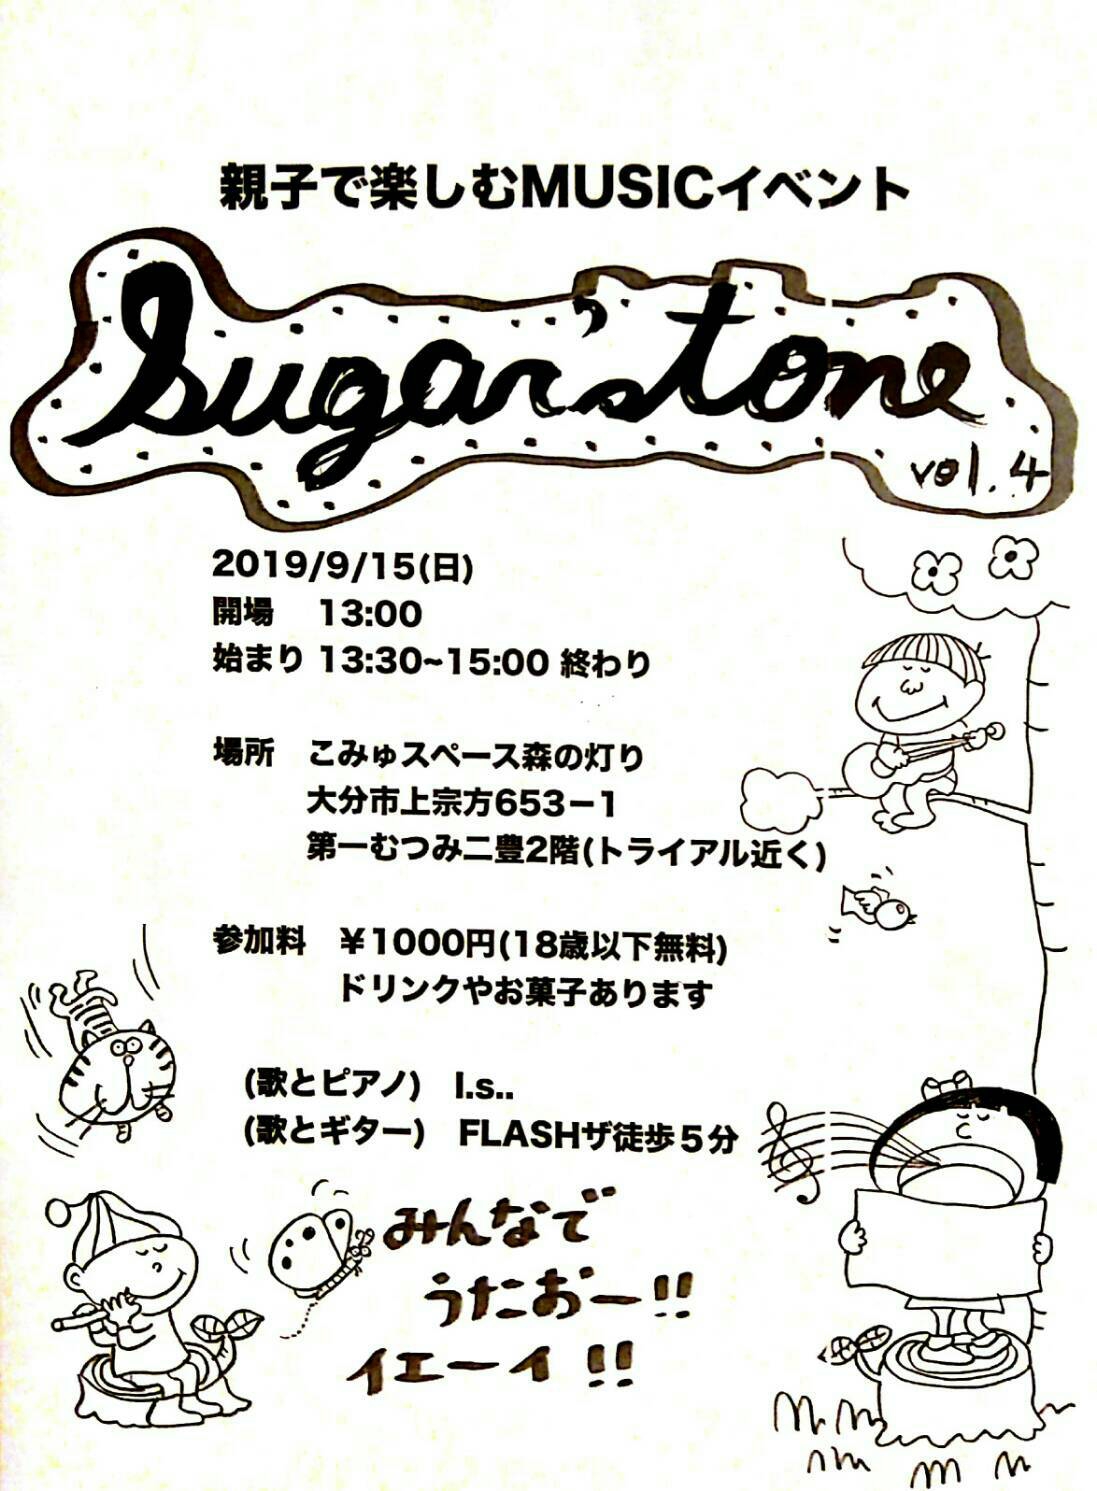 親子で楽しむMUSICイベント
Sugar'stone
vol.4
2019/9/15(日)
開場 13:00
始まり 13:30~15:00 終わり
場所 こみゅスペース森の灯り
大分市上宗方653−1
第一むつみ二豊2階(トライアル近く)
参加料 ￥1000円(18歳以下無料)
ドリンクやお菓子あります
(歌とピアノ) l.s..
(歌とギター) FLASHザ徒歩5分
みんなで
うたおー!!
イエーイ!!